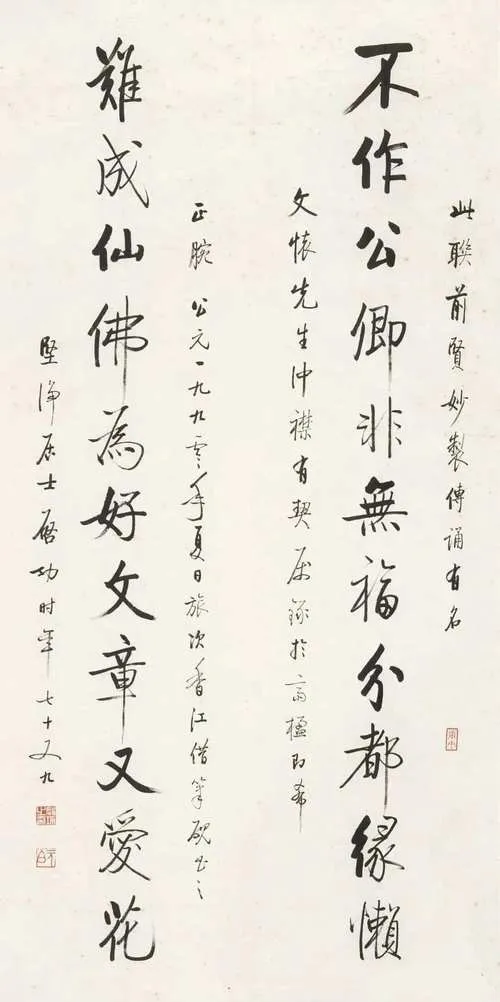 此聯前賢妙製傳誦有名
不作公卿非無福分都緣懶
文懷先生沖襟有契屬錄於齋楹即希
難成仙佛為好文章又愛花
正腕 公元一九九零年夏日旅次香江借筆硯書之
堅淨居士啟功時年七十又九